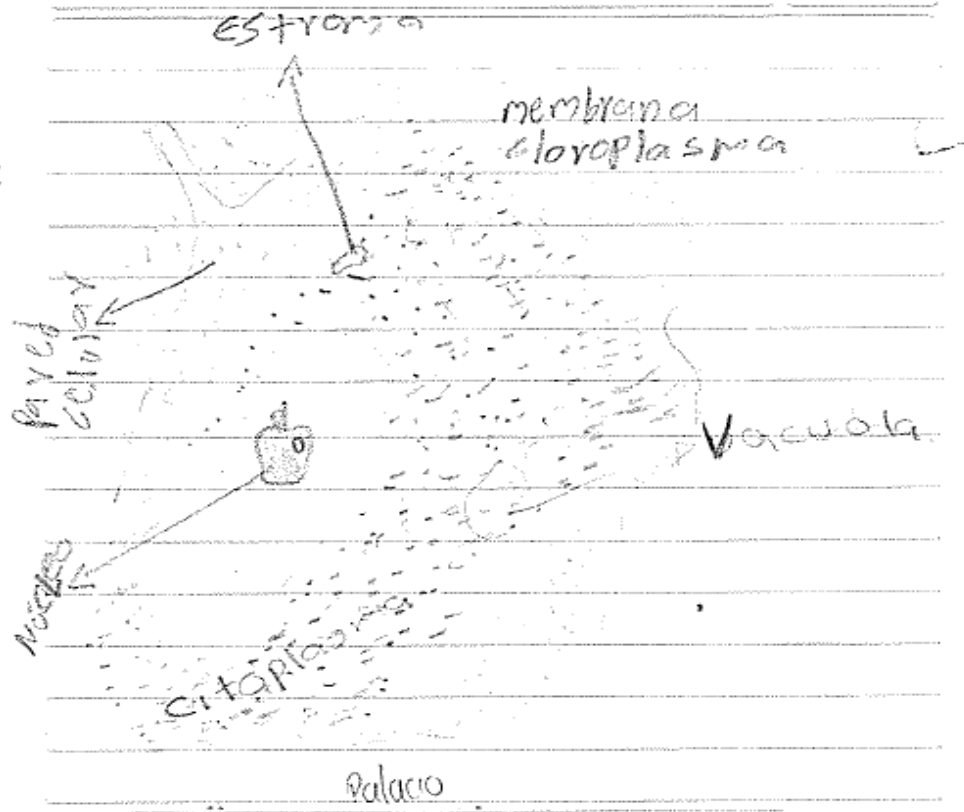 membrana
cloroplasma
pared
celular
Vacuola
Núcleo
citaplasma
Palacio